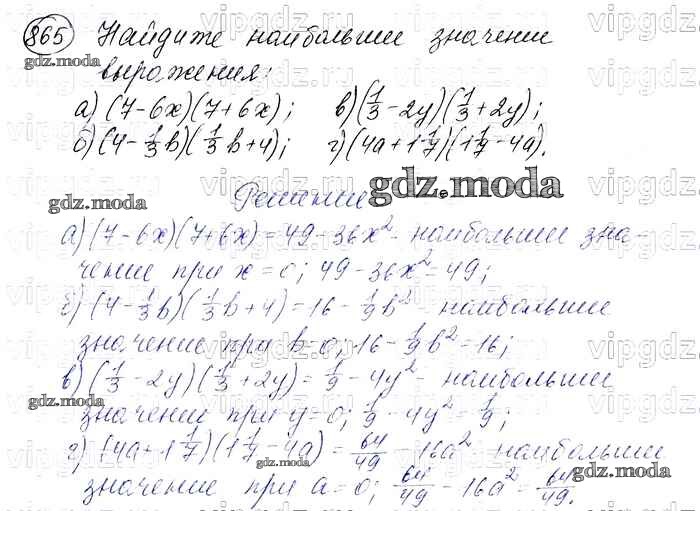 865 Найдите наибольшее значение
gdz.moda
выражения:
а) (7-6x)(7+6x); в) (1/3-2y)(1/3+2y);
б) (4-1/3b)(1/3b+4); г) (4a+1 1/7)(1 1/7-4a).
gdz.moda
gdz.moda
Решение
а) (7-6x)(7+6x)=49-36x²- наибольшее зна-
чение при x=0; 49-36x²=49;
б) (4-1/3b)(1/3b+4)=16-1/9b²- наибольшее
значение при b=0; 16-1/9b²=16;
в) (1/3-2y)(1/3+2y)=1/9-4y²- наибольшее
gdz.moda
значение при y=0; 1/9-4y²=1/9;
г) (4a+1 1/7)(1 1/7-4a)=64/49-16a² наибольшее
gdz.moda
gdz.moda
значение при a=0; 64/49-16a²=64/49.
vipgdz